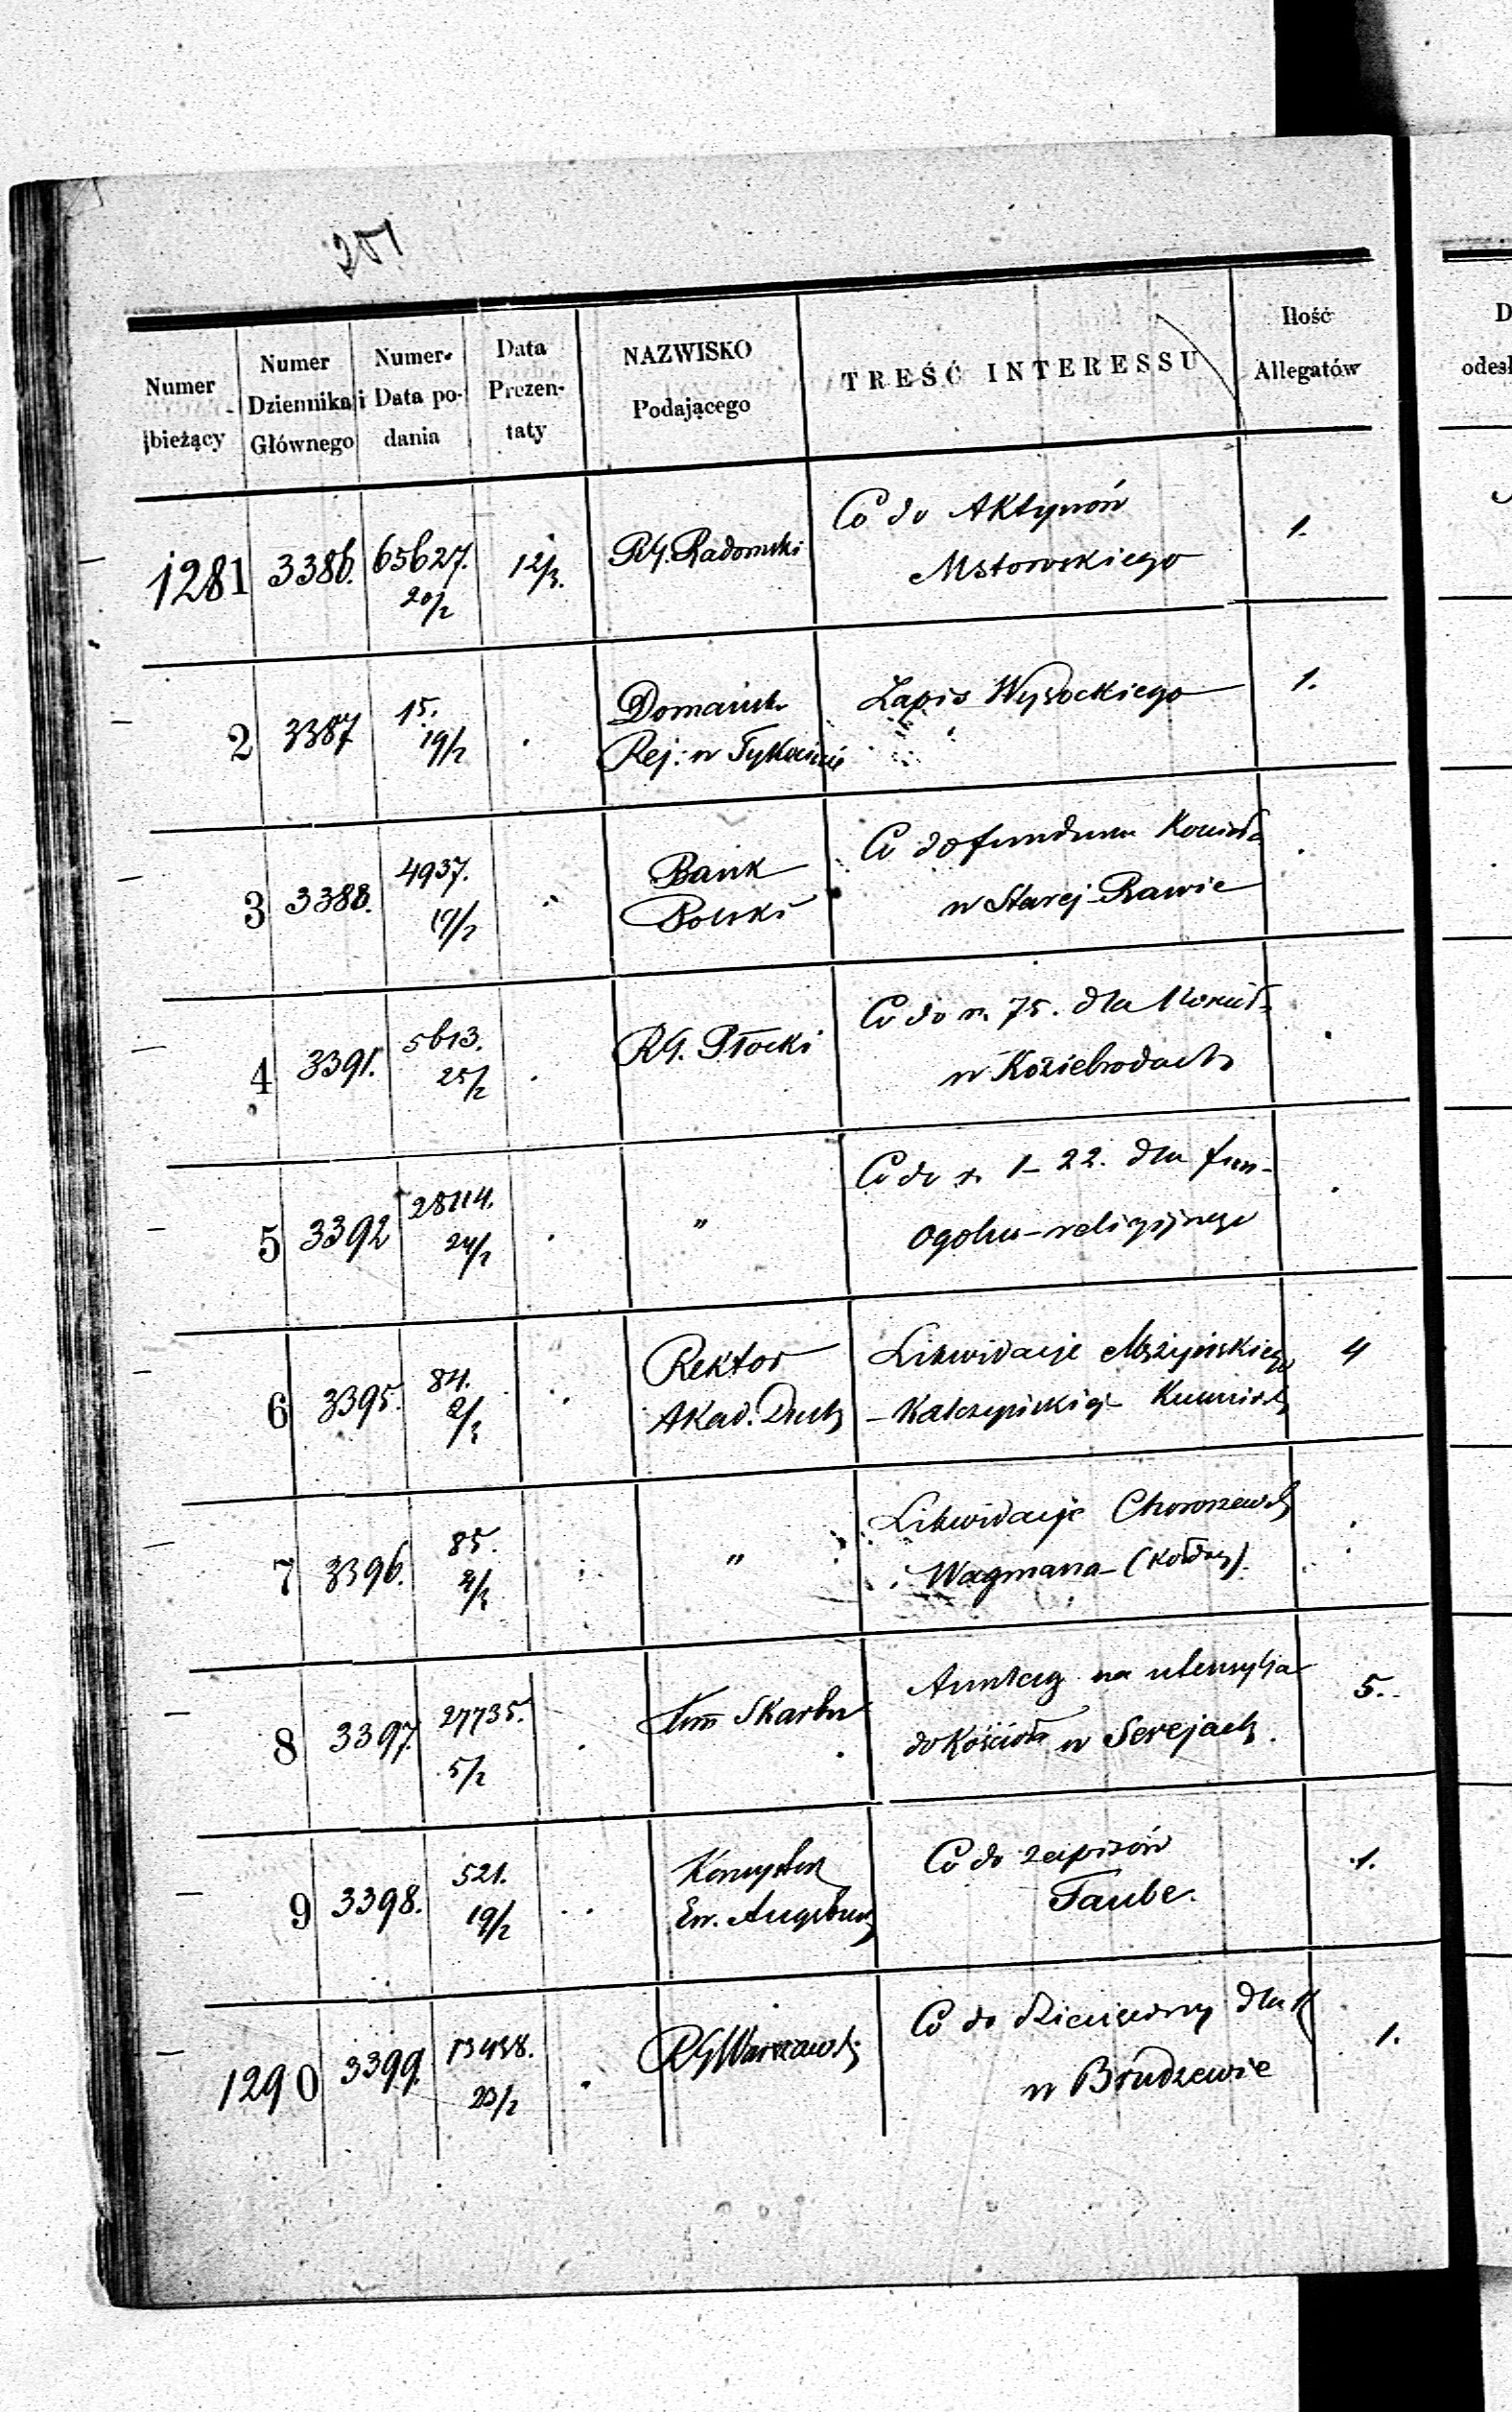 251
Numer bieżący
Numer Dziennika Głównego
Numer i Data podania
Data Prezentaty
NAZWISKO Podającego
TREŚĆ INTERESSU
Ilość Allegatów
1281 3386. 65627. 12/3. RG. Radomski Co do Aktywów 1.
20/2 Mstowskiego
2 3387 15. Zapis Wysockiego 1.
19/2 Rej: w
3 3388. 4937. Bank Co do funduszu
17/2 Polski w Starej Rawie
4 3391. 5613. RG. Płocki Co do r. 75. dla
25/2 w Koziebrodach
5 3392 28114. " Co do r. 1-22. dla fun-
24/2 religijnego
6 3395. 84. Rektor Likwidacje 4
2/3 Akad. Duch
7 3396. 85. " Likwidacje
2/3 Wagmana
8 3397. 27735. Skarbu na utensylja 5.
5/2 do Kościoła w Serejach.
9 3398. 521. Konsystorz Co do zapisów 1.
19/2 Ew. Augsburg Taube.
1290 3399. 13438. RG Warszawski Co do dla K 1.
20/2 w Brudzewie
D
odesł